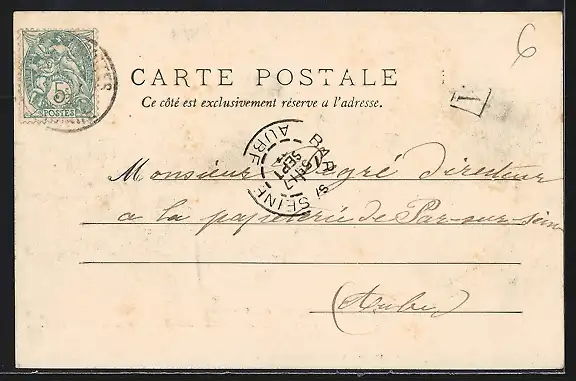 6
5
POSTES
CARTE POSTALE
Ce côté est exclusivement réservé a l'adresse.
1
BAR S/ SEINE
SEPT
AUBE
Monsieur Legré directeur
a la papeterie de Bar-sur-Seine
(Aube)